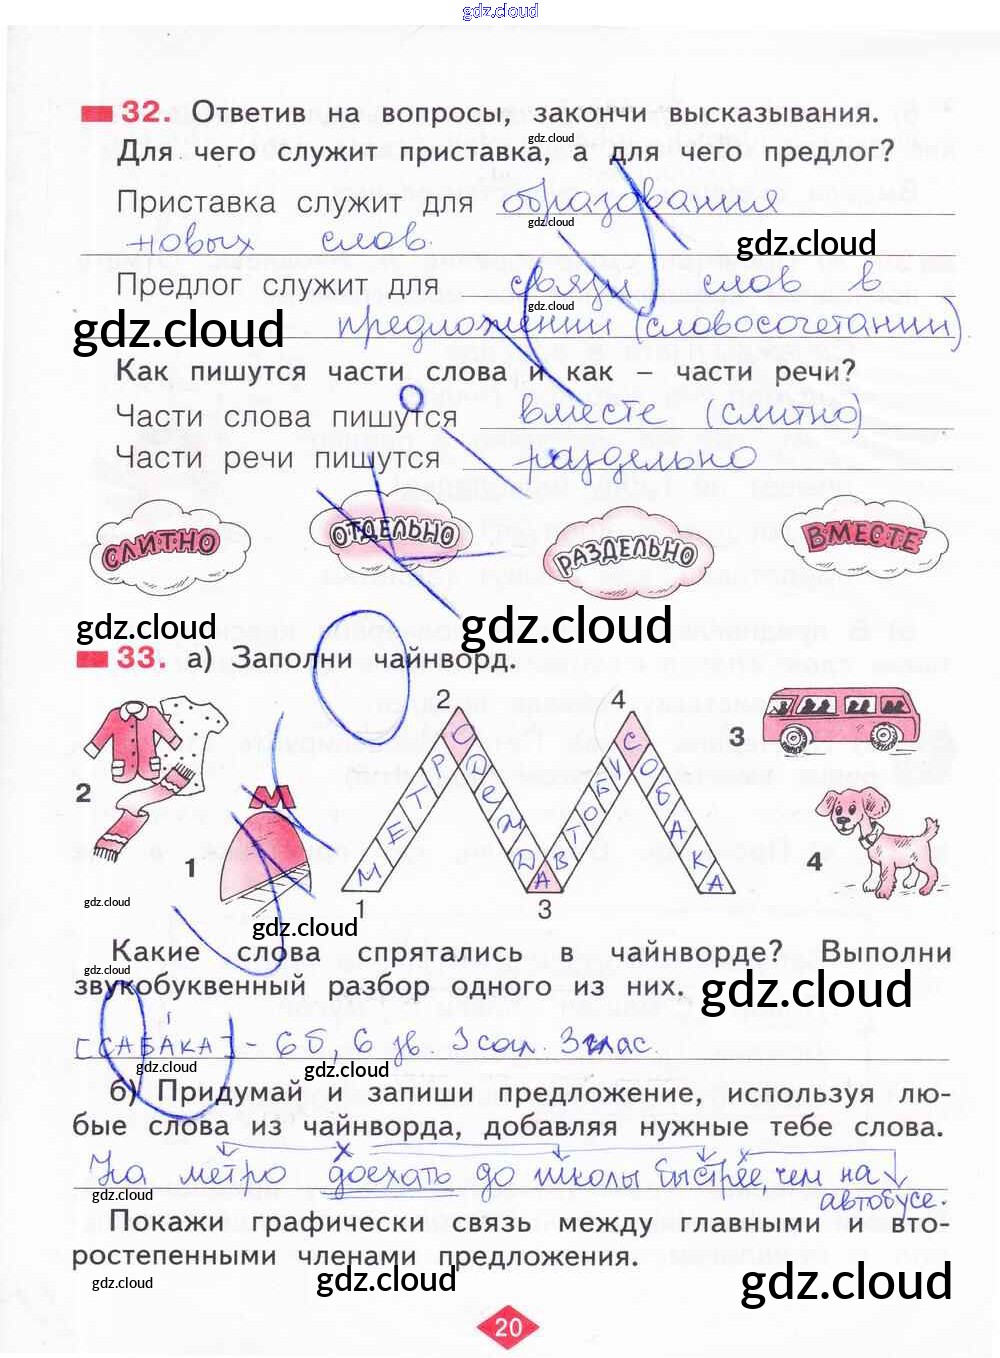 gdz.cloud
gdz.cloud
32. Ответив на вопросы, закончи высказывания.
gdz.cloud
Для чего служит приставка, а для чего предлог?
Приставка служит для образования
gdz.cloud
новых слов.
gdz.cloud
Предлог служит для связи слов в
gdz.cloud
gdz.cloud
предложении (словосочетании)
Как пишутся части слова и как – части речи?
gdz.cloud
Части слова пишутся вместе (слитно)
Части речи пишутся раздельно
СЛИТНО ОТДЕЛЬНО РАЗДЕЛЬНО ВМЕСТЕ
gdz.cloud gdz.cloud
33. а) Заполни чайнворд.
2 4
3
2
М
1
4
МЕТРО
ОДЕЖДА
АВТОБУС
СОБАКА
1 3
gdz.cloud
gdz.cloud
Какие слова спрятались в чайнворде? Выполни
gdz.cloud
звукобуквенный разбор одного из них.
gdz.cloud
[САБА́КА] - 6 б, 6 зв. 3 согл. 3 глас.
gdz.cloud gdz.cloud
б) Придумай и запиши предложение, используя лю-
бые слова из чайнворда, добавляя нужные тебе слова.
На метро доехать до школы быстрее, чем на
gdz.cloud
автобусе.
Покажи графически связь между главными и вто-
ростепенными членами предложения.
gdz.cloud gdz.cloud gdz.cloud
20